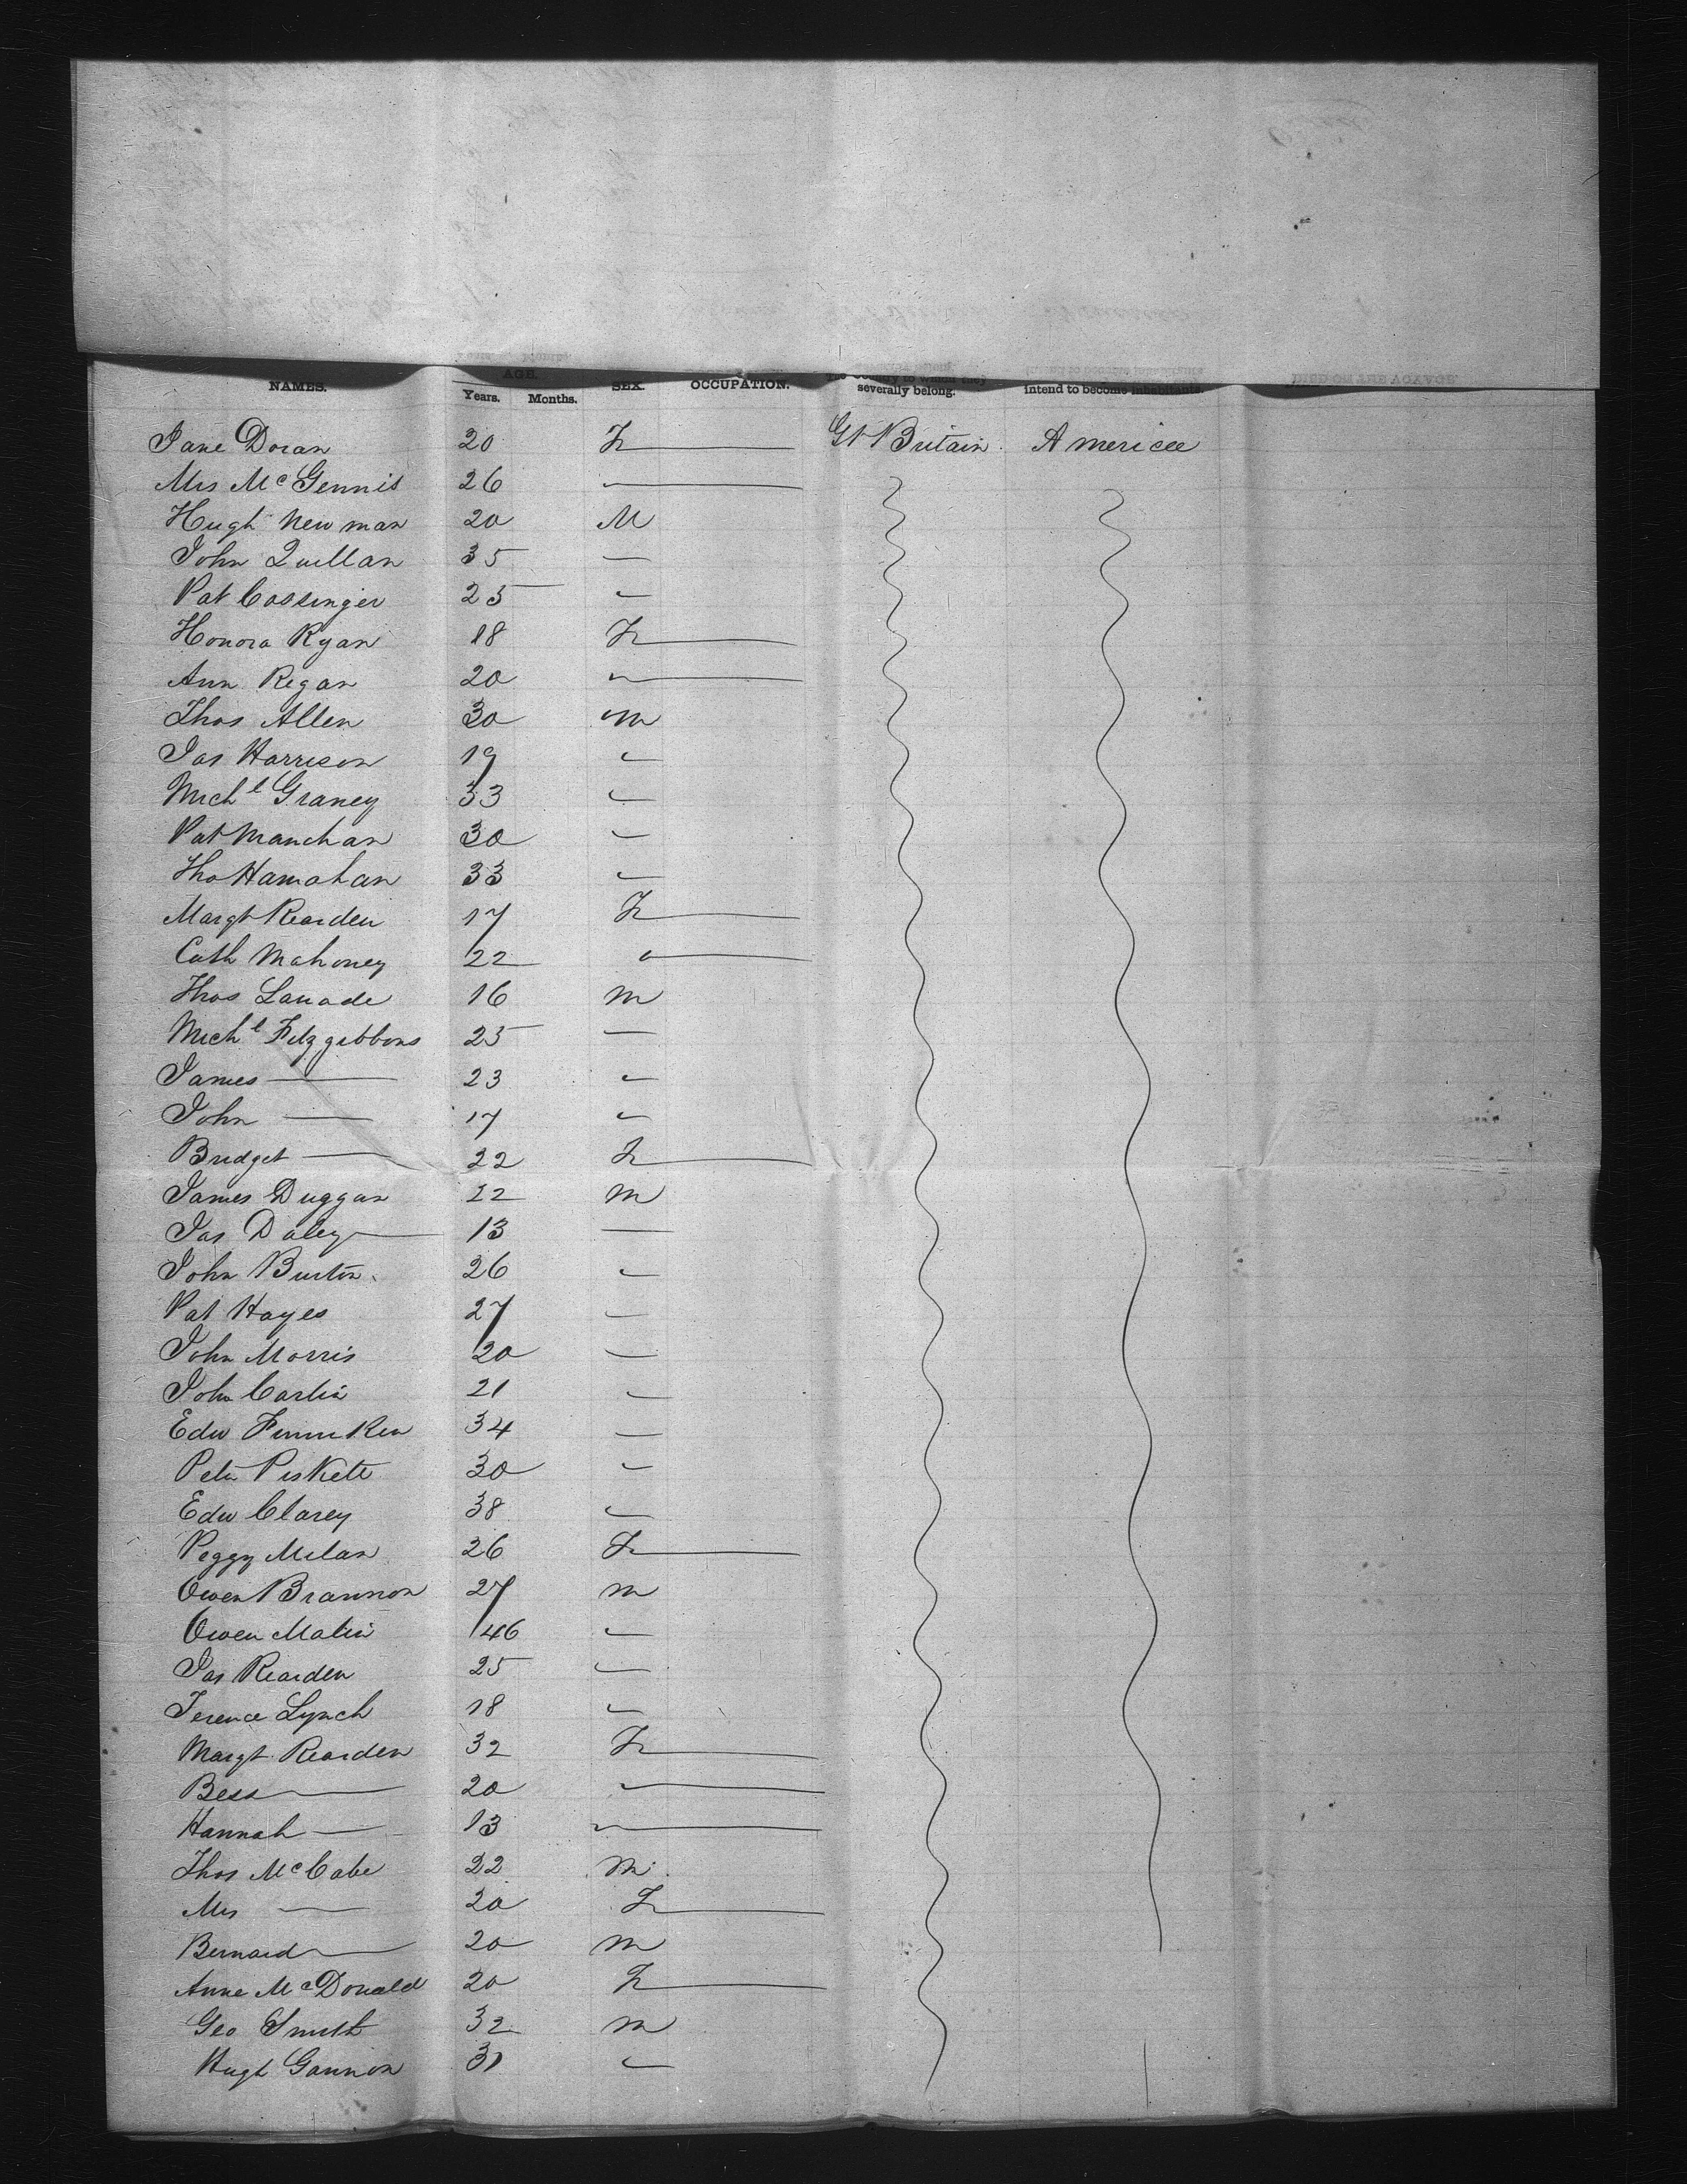 NAMES. AGE. SEX. OCCUPATION. The Country to which they severally belong. intend to become inhabitants.
Years. Months.
Jane Doran 20 F Gt Britain America
Mrs McGennis 26
Hugh Newman 20 M
John Quillan 35
Pat Cossinger 25
Honora Ryan 18 F
Ann Regan 20
Thos Allen 30 m
Jas Harrison 19
Michl Graney 33
Pat Manchan 30
Tho Hamahan 33
Margt Rearden 17 F
Cath Mahoney 22
Thos Lanade 16 m
Michl Fitzgibbons 25
James — 23
John — 17
Bridget — 22 F
James Duggan 22 m
Jas Daley 13
John Burton 26
Pat Hayes 27
John Morris 20
John Carlin 21
Edw Finneken 34
Peter Piskett 30
Edw Clarey 38
Peggy Milan 26 F
Owen Brannon 27 m
Owen Malin 46
Jas Rearden 25
Terence Lynch 18
Margt Rearden 32 F
Bess — 20
Hannah — 13
Thos McCabe 22 m
Mrs — 20 F
Bernard — 20 m
Anne McDonald 20 F
Geo Smith 32 m
Hugh Gannon 31